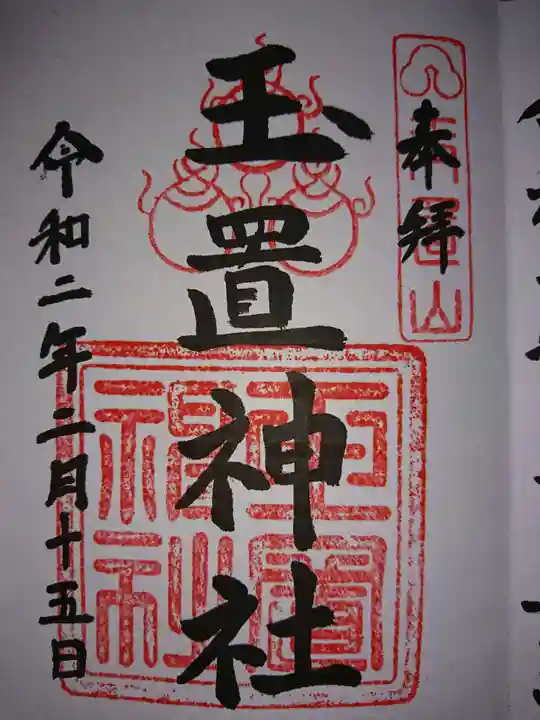 奉拝
玉置山
玉置神社
令和二年二月十五日